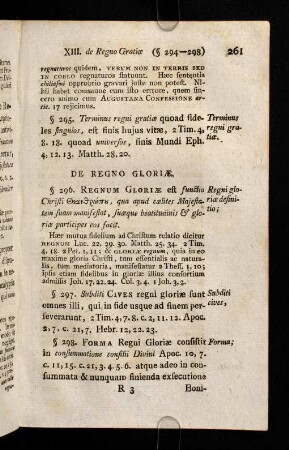 XIII. de Regno Gratiæ (§ 294—298) 261
regnaturos quidem, VERUM NON IN TERRIS SED
IN COELO regnaturos statuunt. Hæc sententia
chiliasmi opprobrio gravari juste non potest. Ni-
hil habet commune cum isto errore, quem sin-
cero animo cum AUGUSTANA CONFESSIONE ar-
tic. 17 rejicimus.
§ 295. Terminus regni gratiæ quoad fide-
les singulos, est finis hujus vitæ, 2 Tim. 4,
8. 18. quoad universos, finis Mundi Eph.
4, 12. 13. Matth. 28, 20.
Terminus
regni gra-
tiæ.
DE REGNO GLORIÆ.
§ 296. REGNUM GLORIÆ est functio
Christi Θεανθρώπου, qua apud cælites Majesta-
tem suam manifestat, suæque beatitudinis & glo-
riæ participes eos facit.
Regni glo-
riæ defini-
tio;
Hæc mutua fidelium ad Christum relatio dicitur
REGNUM Luc. 22, 29. 30. Matth. 25, 34. 2 Tim.
4, 18. 2 Pet. 1, 11: & GLORIÆ regnum, quia in eo
maxime gloria Christi, tum essentialis ac natura-
lis, tum mediatoria, manifestatur 2 Thess. 1, 10;
ipsis etiam fidelibus in gloriæ hujus consortium
admissis Joh. 17, 22. 24. Col. 3, 4. 1 Joh. 3, 2.
§ 297. Subditi CIVES regni gloriæ sunt
omnes illi, qui in fide usque ad finem per-
severarunt, 2 Tim. 4, 7. 8. c. 2, 11. 12. Apoc.
2, 7. c. 21, 7, Hebr. 12, 22. 23.
Subditi
cives,
§ 298. FORMA Regni Gloriæ consistit
in consummatione consilii Divini Apoc. 10, 7.
c. 11, 15. c. 21, 3. 4. 5. 6. atque adeo in con-
summata & nunquam finienda exsecutione
Forma;
R 3 Boni-